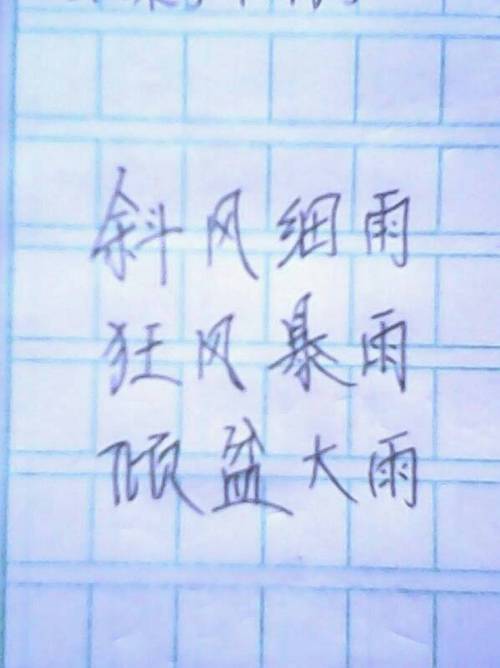 斜风细雨
狂风暴雨
倾盆大雨